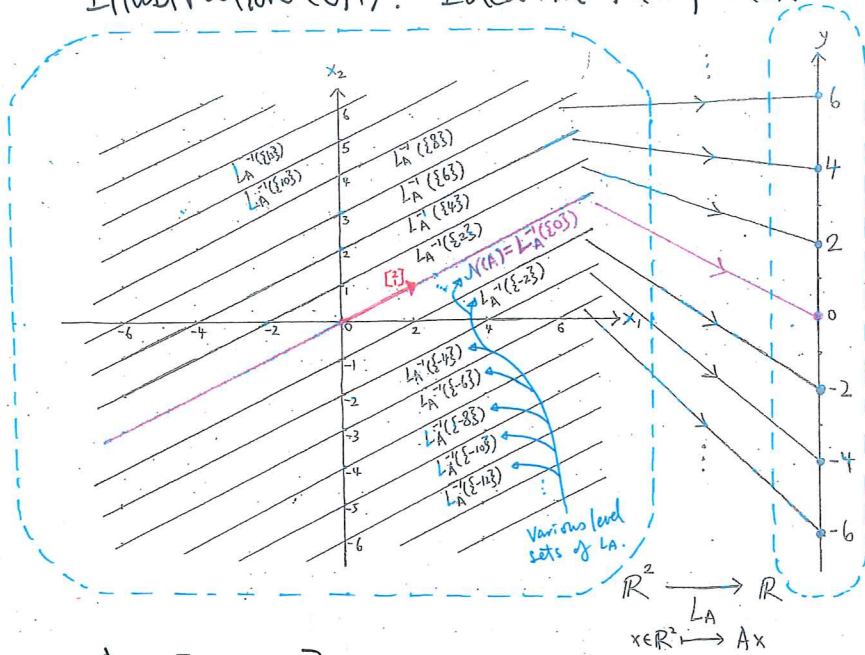 x₂
y
6
5
4
3
2
1
0
-1
-2
-3
-4
-5
-6
-6
-4
-2
2
4
6
x₁
L_A^{-1}({12})
L_A^{-1}({10})
L_A^{-1}({8})
L_A^{-1}({6})
L_A^{-1}({4})
L_A^{-1}({2})
N(A) = L_A^{-1}({0})
[2 1]
L_A^{-1}({-2})
L_A^{-1}({-4})
L_A^{-1}({-6})
L_A^{-1}({-8})
L_A^{-1}({-10})
L_A^{-1}({-12})
various level
sets of L_A.
6
4
2
0
-2
-4
-6
ℝ² ⟶ ℝ
L_A
x∈ℝ² ⟼ Ax